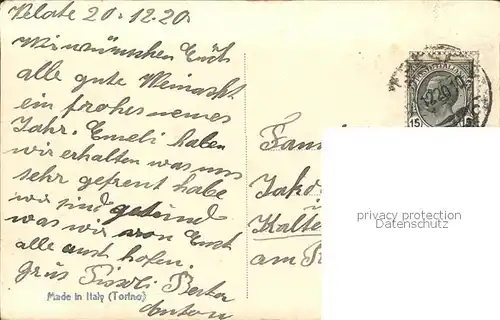 Velate 20.12.20.
Wir wünschen Euch
alle gute Weinacht
ein frohes neues
Jahr. Emeli haben
wir erhalten was uns
sehr gefreut habe
wir sind
was wir von Euch
alle auch hofen.
Grüs
Anton
Made in Italy (Torino)
15 15
Fami
Jako
Kalte
am R
privacy protection